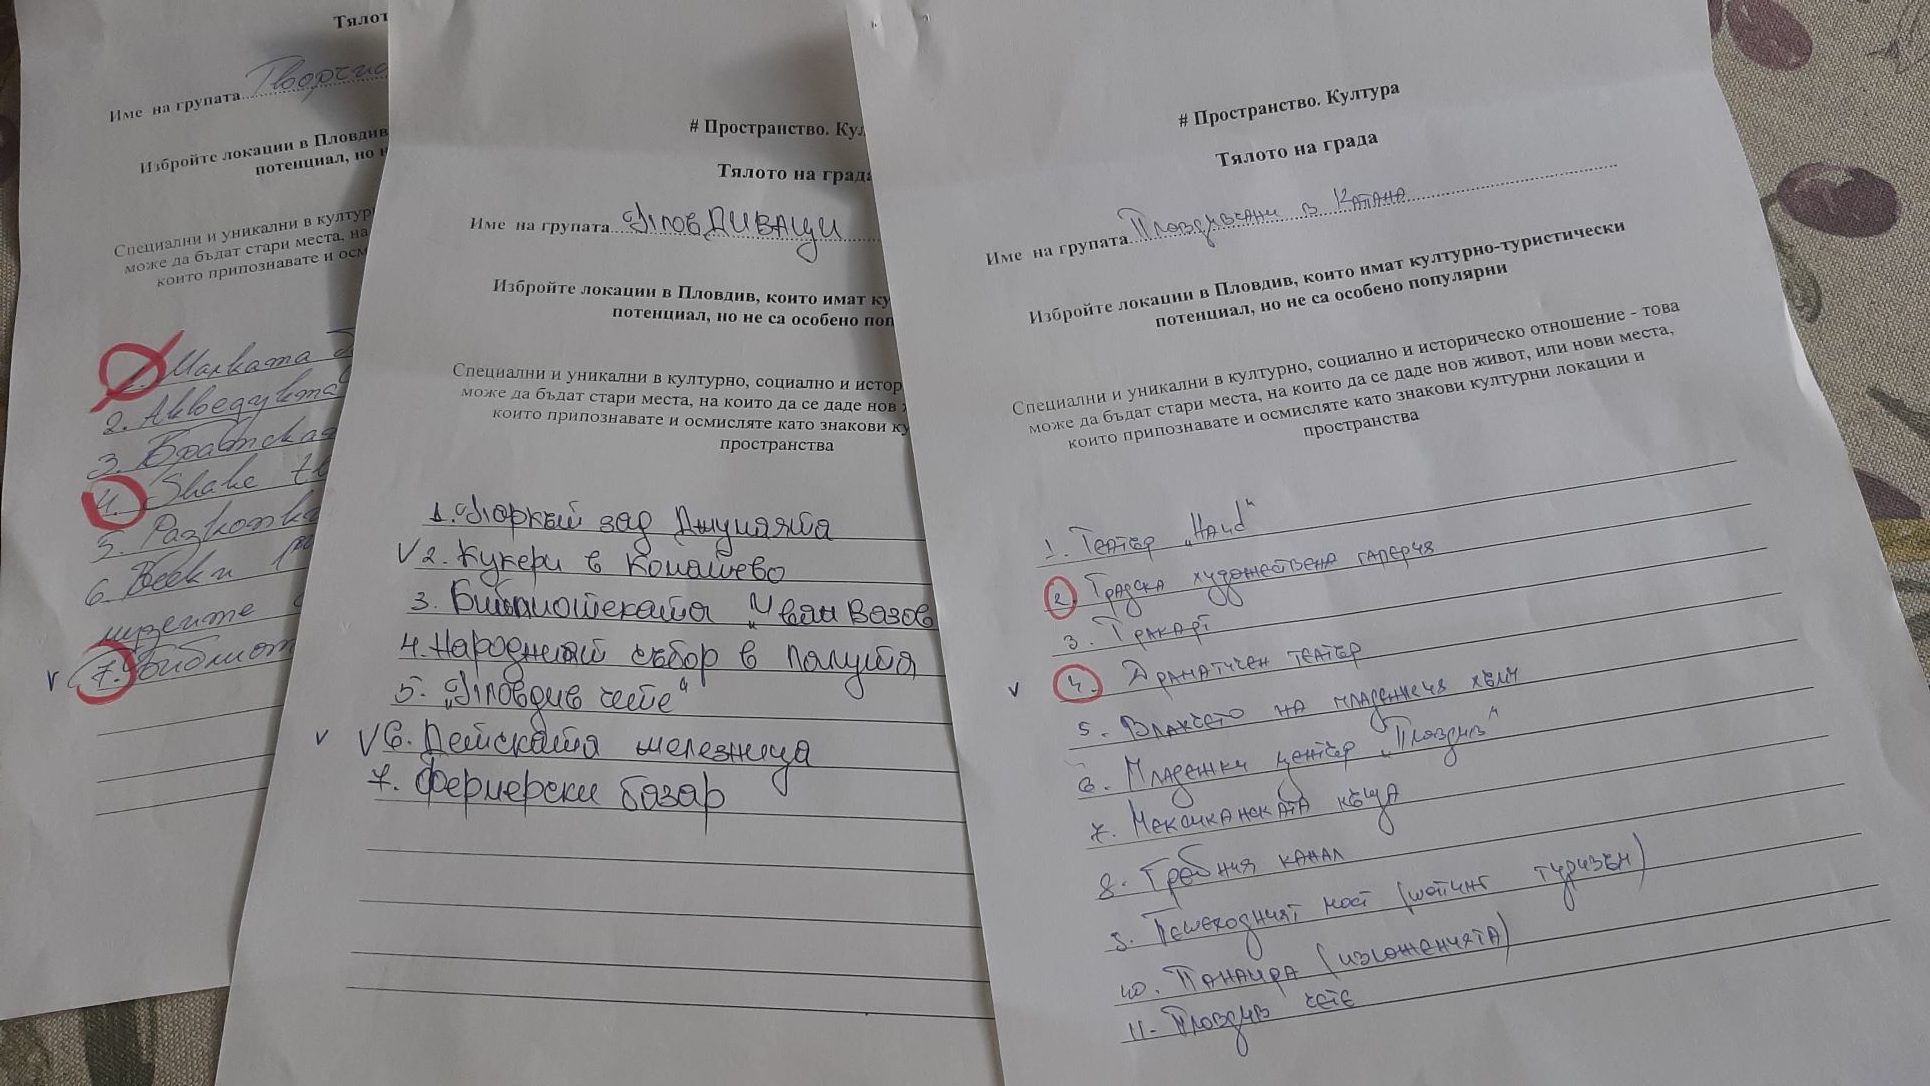 Тялот
Име на групата
Избройте локации в Пловдив
потенциал, но н
Специални и уникални в култур
може да бъдат стари места, на
които припознавате и осм
1. Малката
2. Акведукта
3. Братская
4. Shake
5. Разкопки
6.
музеите
v 7.
# Пространство. Кул
Тялото на града
Име на групата ПловДИВАЦИ
Избройте локации в Пловдив, които имат ку
потенциал, но не са особено поп
Специални и уникални в културно, социално и истор
може да бъдат стари места, на които да се даде нов
които припознавате и осмисляте като знакови ку
пространства
1. Паркът зад Джумаята
V 2. Кукери в Кошаево
3. Библиотеката „Иван Вазов
4. Народният събор в
5. „Пловдив чете“
v V 6. Детската железница
7. Фермерски базар
# Пространство. Култура
Тялото на града
Име на групата Пловдивчани в Капана
Избройте локации в Пловдив, които имат културно-туристически
потенциал, но не са особено популярни
Специални и уникални в културно, социално и историческо отношение - това
може да бъдат стари места, на които да се даде нов живот, или нови места,
които припознавате и осмисляте като знакови културни локации и
пространства
1. Театър „Hand“
2. Градска художествена галерия
3. Тракарт
v 4. Драматичен театър
5. Влакчето на младежкия хълм
6. Младежки център „Пловдив“
7. Мексиканската къща
8. Гребния канал
9. Пешеходният мост (шопинг туризъм)
10. Панаира (изложенията)
11. Пловдив чете